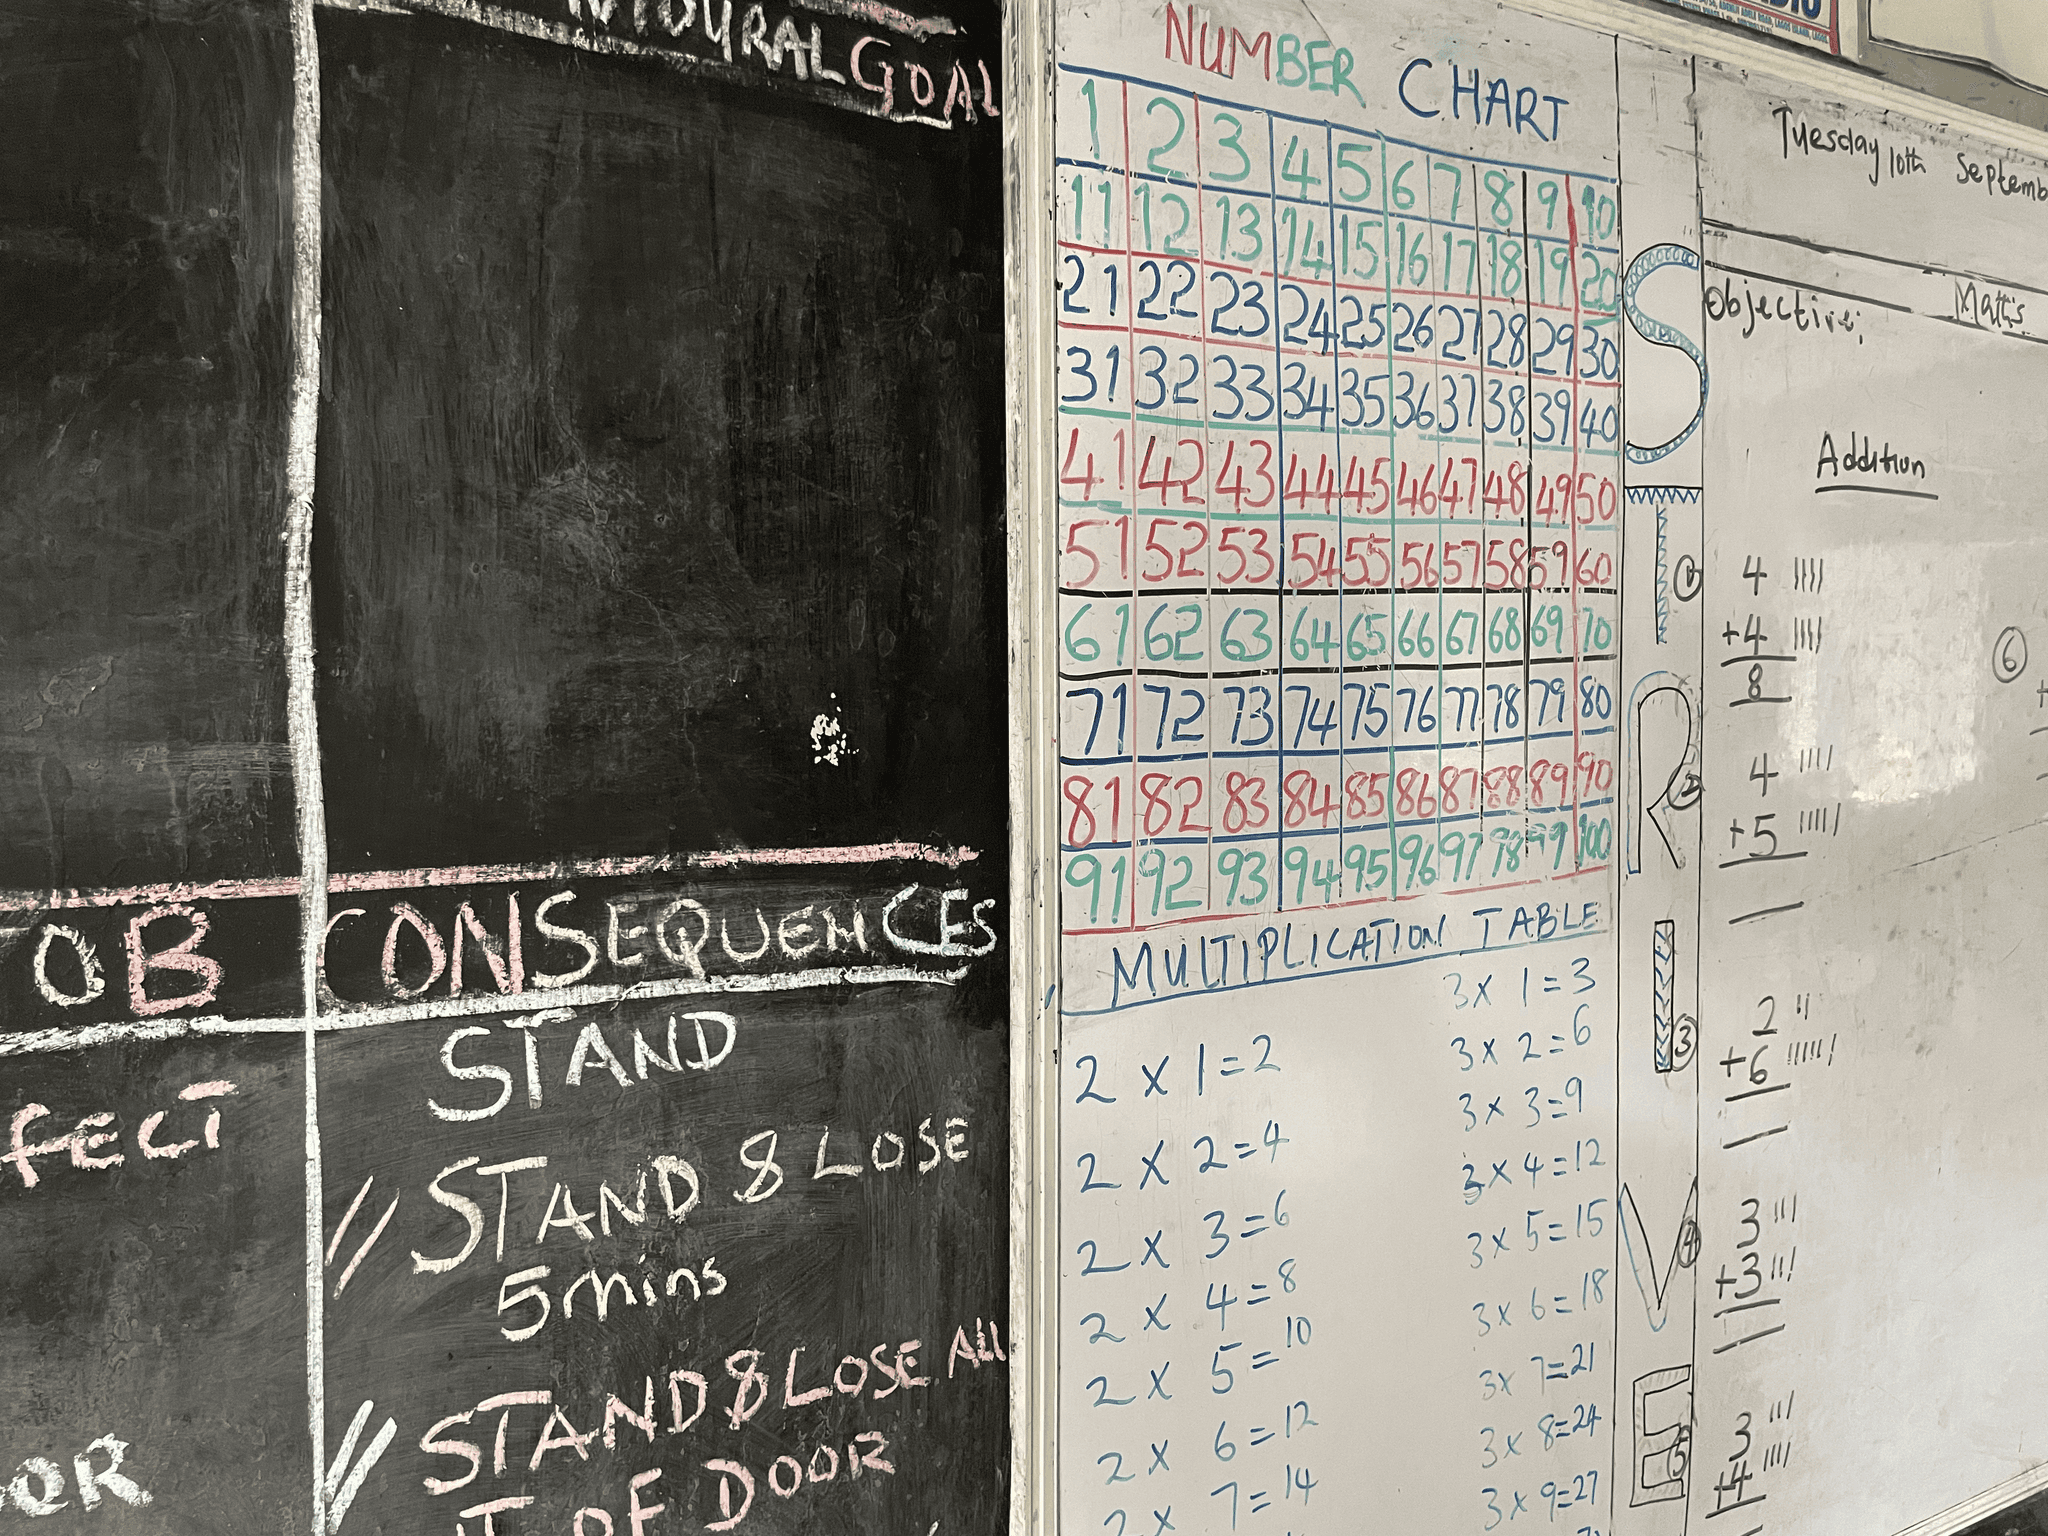 GOAL
OB
CONSEQUENCES
FECT
STAND
// STAND & LOSE
5mins
// STAND & LOSE All
OF DOOR
NUMBER CHART
1 2 3 4 5 6 7 8 9 10
11 12 13 14 15 16 17 18 19 20
21 22 23 24 25 26 27 28 29 30
31 32 33 34 35 36 37 38 39 40
41 42 43 44 45 46 47 48 49 50
51 52 53 54 55 56 57 58 59 60
61 62 63 64 65 66 67 68 69 70
71 72 73 74 75 76 77 78 79 80
81 82 83 84 85 86 87 88 89 90
91 92 93 94 95 96 97 98 99 100
MULTIPLICATION TABLE
2 x 1 = 2
2 x 2 = 4
2 x 3 = 6
2 x 4 = 8
2 x 5 = 10
2 x 6 = 12
2 x 7 = 14
3 x 1 = 3
3 x 2 = 6
3 x 3 = 9
3 x 4 = 12
3 x 5 = 15
3 x 6 = 18
3 x 7 = 21
3 x 8 = 24
3 x 9 = 27
STRIVE
Tuesday 10th Septemb
Maths
Objective;
Addition
1
4 ||||
+4 ||||
8
2
4 ||||
+5 |||||
3
2 ||
+6 ||||||
4
3 |||
+3 |||
5
3 |||
+4 ||||
6
+